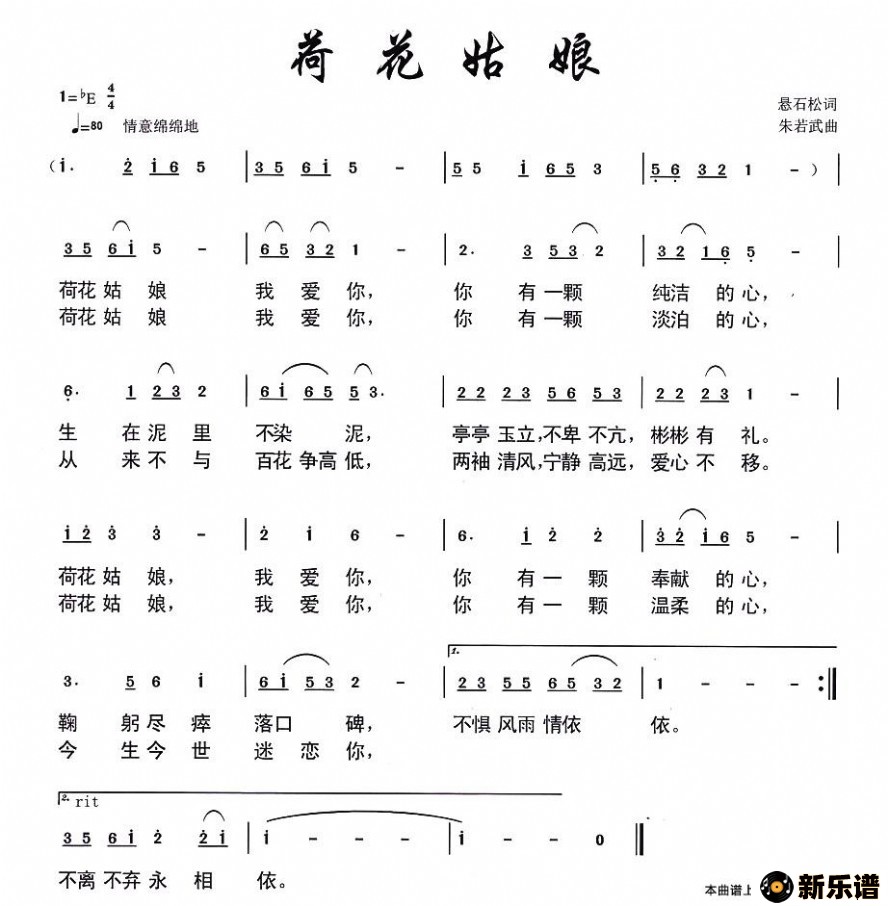 荷花姑娘
1=♭E 4/4
悬石松词
♩=80 情意绵绵地
朱若武曲
(i· 2̇ i 6 5 | 3 5 6 i 5 - | 5 5 i 6 5 3 | 5̣ 6̣ 3 2 1 -) |
3 5 6 i 5 - | 6 5 3 2 1 - | 2· 3 5 3 2 | 3 2 1 6̣ 5̣ - |
荷花姑 娘 我 爱 你, 你 有一颗 纯洁 的心,
荷花姑 娘 我 爱 你, 你 有一颗 淡泊 的心,
6̣· 1 2 3 2 | 6 i 6 5 5 3· | 2 2 2 3 5 6 5 3 | 2 2 2 3 1 - |
生 在泥 里 不染 泥, 亭亭 玉立,不卑 不亢, 彬彬 有 礼。
从 来不 与 百花 争高 低, 两袖 清风,宁静 高远, 爱心 不 移。
i 2̇ 3̇ 3̇ - | 2̇ i 6 - | 6· i 2̇ 2̇ | 3̇ 2̇ i 6 5 - |
荷花 姑 娘, 我 爱 你, 你 有一 颗 奉献 的心,
荷花 姑 娘, 我 爱 你, 你 有一 颗 温柔 的心,
1.
3· 5 6 i | 6 i 5 3 2 - | 2 3 5 5 6 5 3 2 | 1 - - - :‖
鞠 躬尽 瘁 落口 碑, 不惧 风雨 情依 依。
今 生今 世 迷 恋 你,
2. rit
3 5 6 i 2̇ 2̇ i | i - - - | i - - 0 ‖
不离 不弃 永 相 依。
本曲谱上
新乐谱